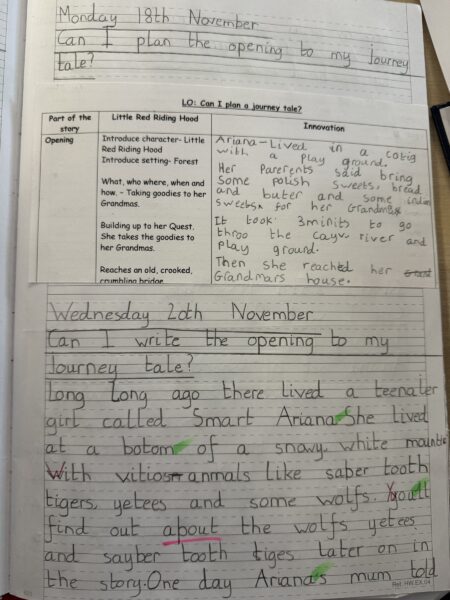 Monday 18th November
Can I plan the opening to my journey
tale?
LO: Can I plan a journey tale?
Part of the
story
Little Red Riding Hood
Innovation
Opening
Introduce character- Little
Red Riding Hood
Introduce setting- Forest
What, who where, when and
how. - Taking goodies to her
Grandmas.
Building up to her Quest.
She takes the goodies to
her Grandmas.
Reaches an old, crooked,
crumbling bridge
Ariana- Lived in a cotig
with a play ground.
Her Parerents said bring
Some polish sweets, bread
and buter and some indian
sweets for her Grandma
It took 3minits to go
throo the cayv river and
play ground.
Then she reached her
Grandmars house.
Wednesday 20th November
Can I write the opening to my
Journey tale?
Long Long ago there lived a teenater
girl called Smart Ariana. She lived
at a botom of a snawy white
With anmals like saber tooth
tigers, yetees and some wolfs. Youll
find out about the wolfs yetees
and sayber tooth tiges later on in
the story. One day Ariana's mum told